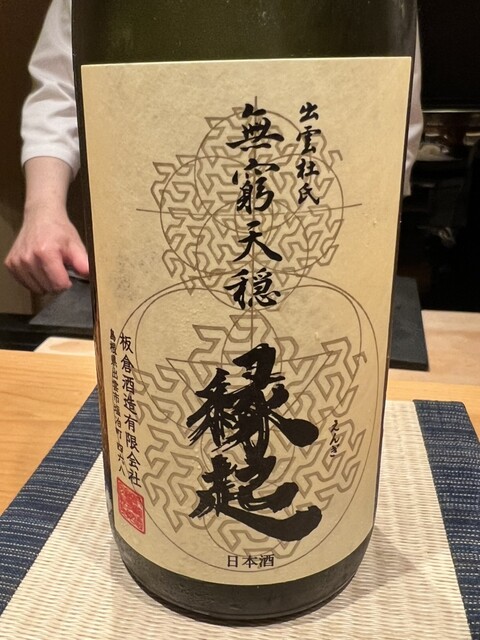 出雲杜氏
無窮天穏
縁起
えんぎ
板倉酒造有限会社
島根県出雲市塩冶町四六八
日本酒